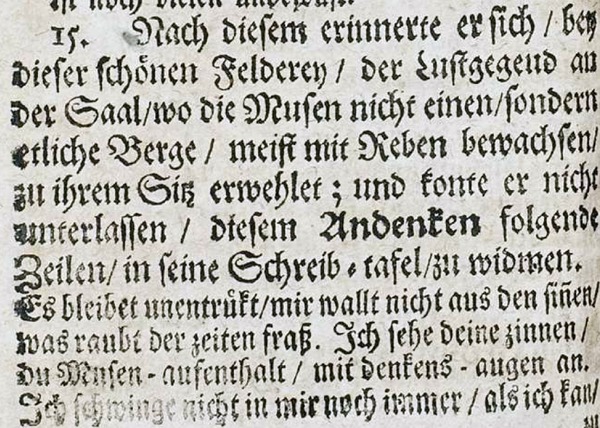 ist noch vielen unbewust.
15. Nach diesem erinnerte er sich / bey
dieser schönen Felderey / der Lustgegend an
der Saal/wo die Musen nicht einen/sondern
etliche Berge / meist mit Reben bewachsen/
zu ihrem Sitz erwehlet ; und konte er nicht
unterlassen / diesem Andenken folgende
Zeilen/ in seine Schreib-tafel/zu widmen.
Es bleibet unentrükt/mir wallt nicht aus den siñen/
was raubt der zeiten fraß. Ich sehe deine zinnen/
du Musen-aufenthalt / mit denkens-augen an.
Ich schwinge nicht in mir noch immer / als ich kan/
zu